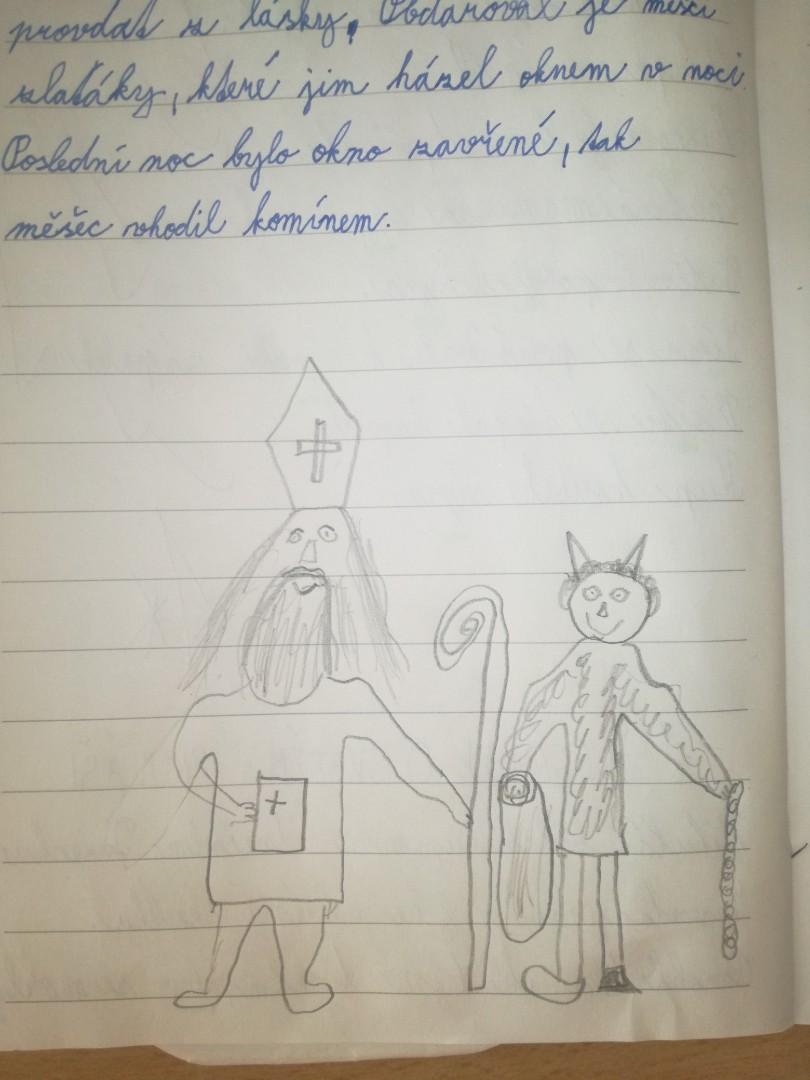 provdat z lásky. Obdaroval je měsci
zlaťáky, které jim házel oknem v noci.
Poslední noc bylo okno zavřené, tak
měšec vhodil komínem.